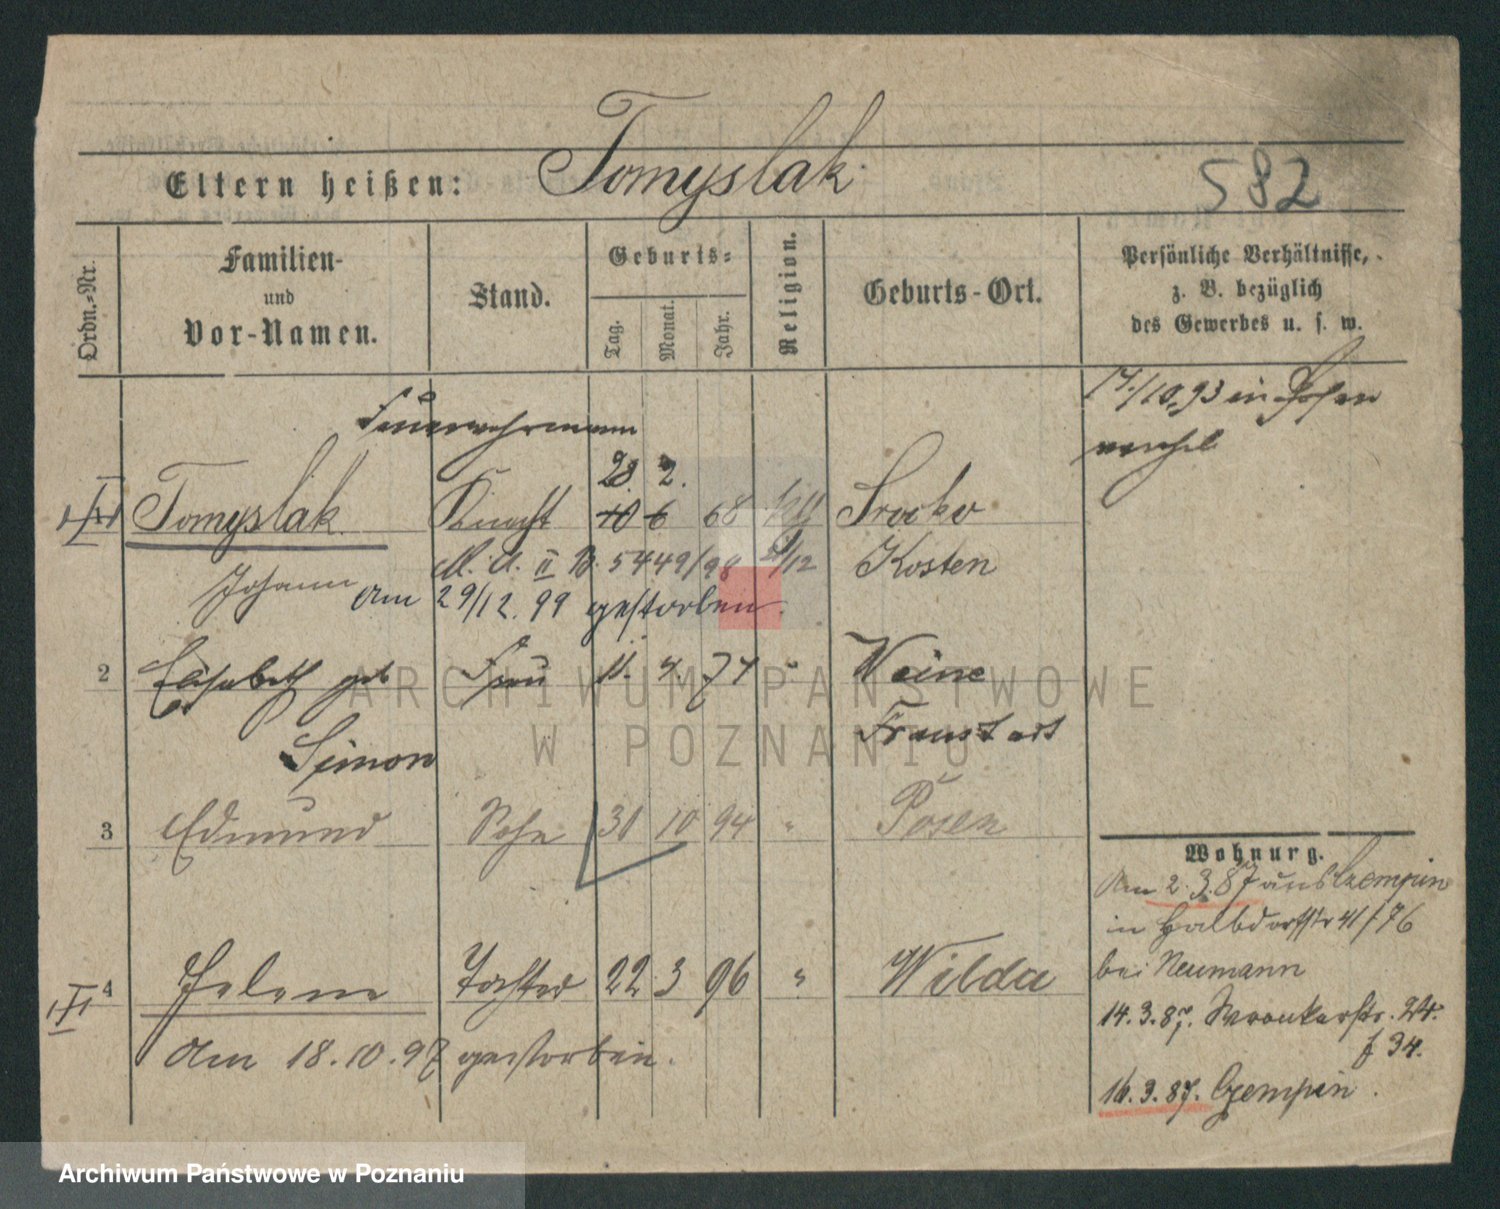 Eltern heißen: Tomyslak
582
Ordn.-Nr.
Familien-
und
Vor-Namen.
Stand.
Geburts-
Tag.
Monat.
Jahr.
Religion.
Geburts-Ort.
Persönliche Verhältnisse,
z. B. bezüglich
des Gewerbes u. s. w.
17./10.93 in Posen
verehel.
Feuerwehrmann
28. 2.
Tomyslak Knecht 10 6 68 Srocko
Johann M. A. II B. 5449/98 9/12 Kosten
Am 29/12. 99 gestorben.
2 Elisabeth geb Frau 11. 4. 74 " Weine
Simon Fraustadt
3 Edmund Sohn 30 10 94 " Posen
Wohnung.
Am 2.3.87 aus Czempin
in Halbdorfstr 41/76
bei Neumann
4 Helene Tochter 22 3 96 " Wilda
14.3.87. Wronkerstr. 24.
f 34.
Am 18.10.97 gestorben.
16.3.87. Czempin.
ARCHIWUM PAŃSTWOWE
W POZNANIU
Archiwum Państwowe w Poznaniu